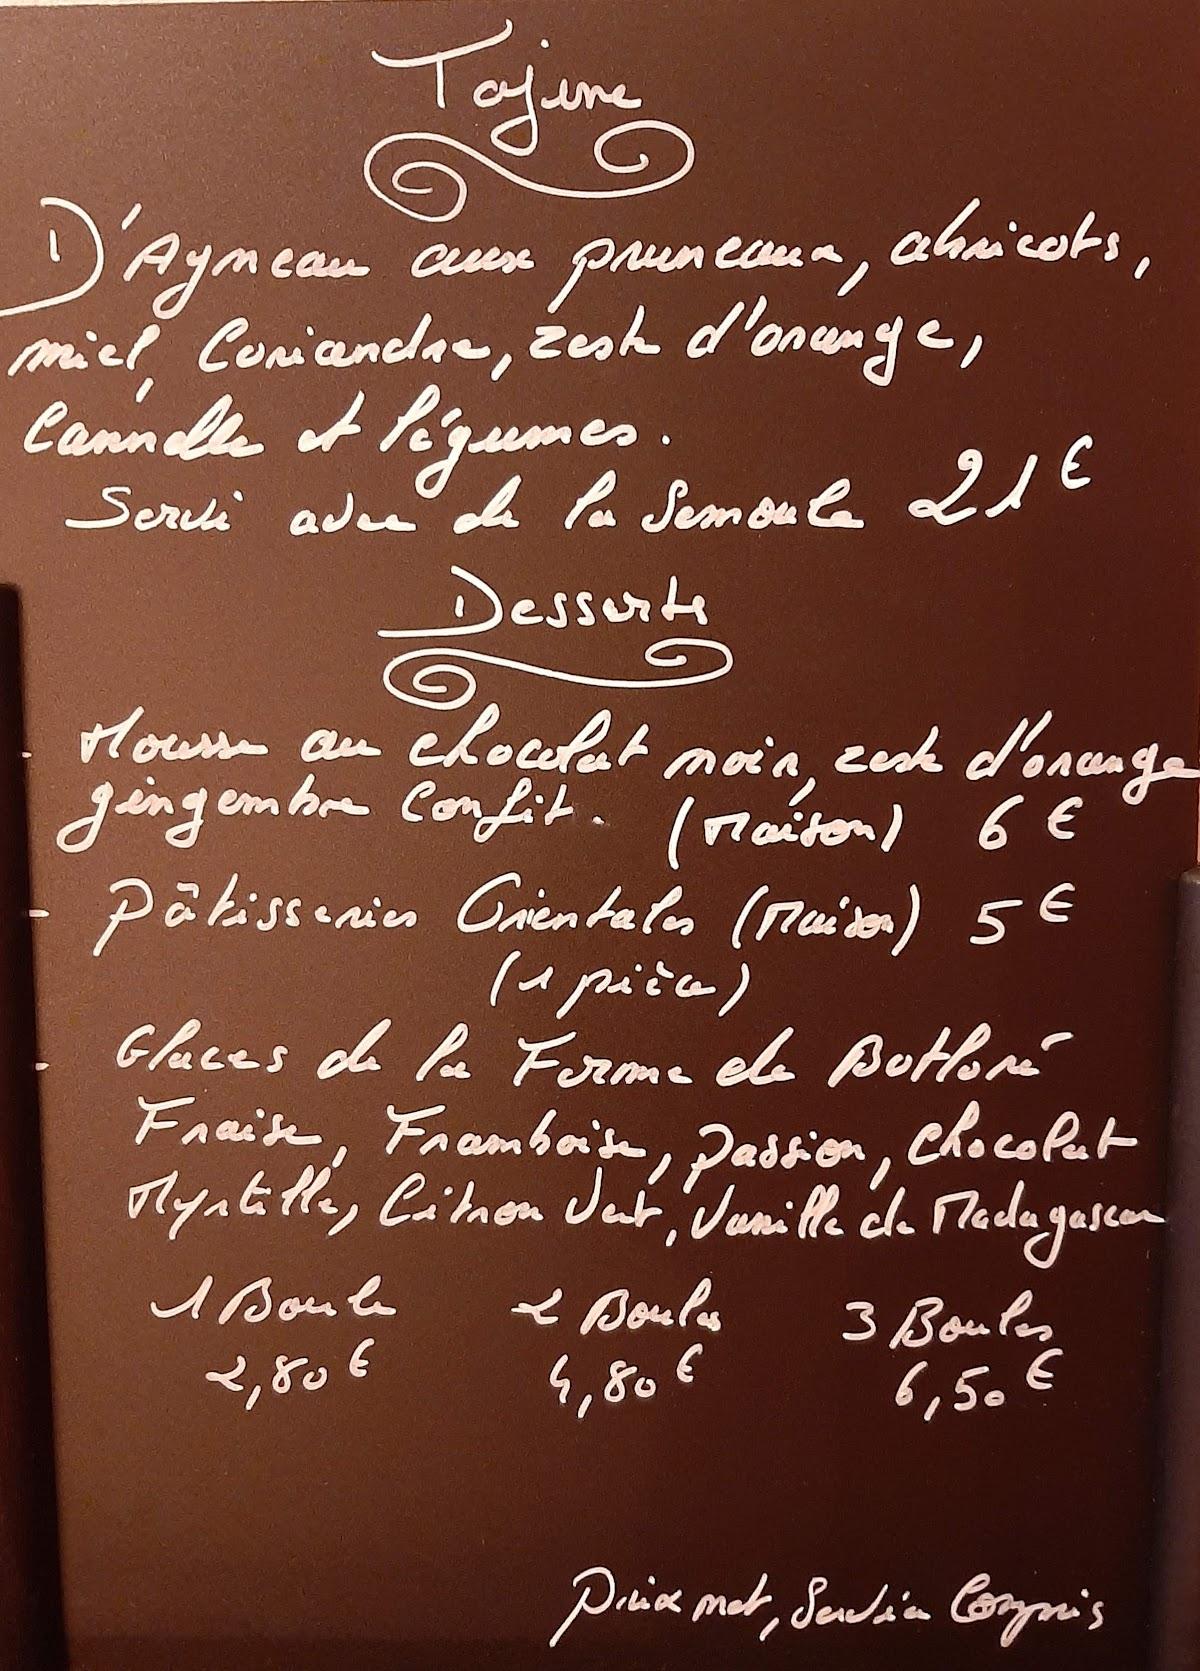 Tajine
D'Agneau aux pruneaux, abricots,
miel, Coriandre, zeste d'orange,
Cannelle et légumes.
Servi avec de la Semoule 21€
Desserts
- Mousse au chocolat noir, zeste d'orange
gingembre confit. (Maison) 6€
- Pâtisseries Orientales (Maison) 5€
(1 pièce)
- Glaces de la Ferme de Botloré
Fraise, Framboise, passion, chocolat
Myrtille, Citron Vert, Vanille de Madagascar
1 Boule 2 Boules 3 Boules
2,80€ 4,80€ 6,50€
Prix net, Service Compris